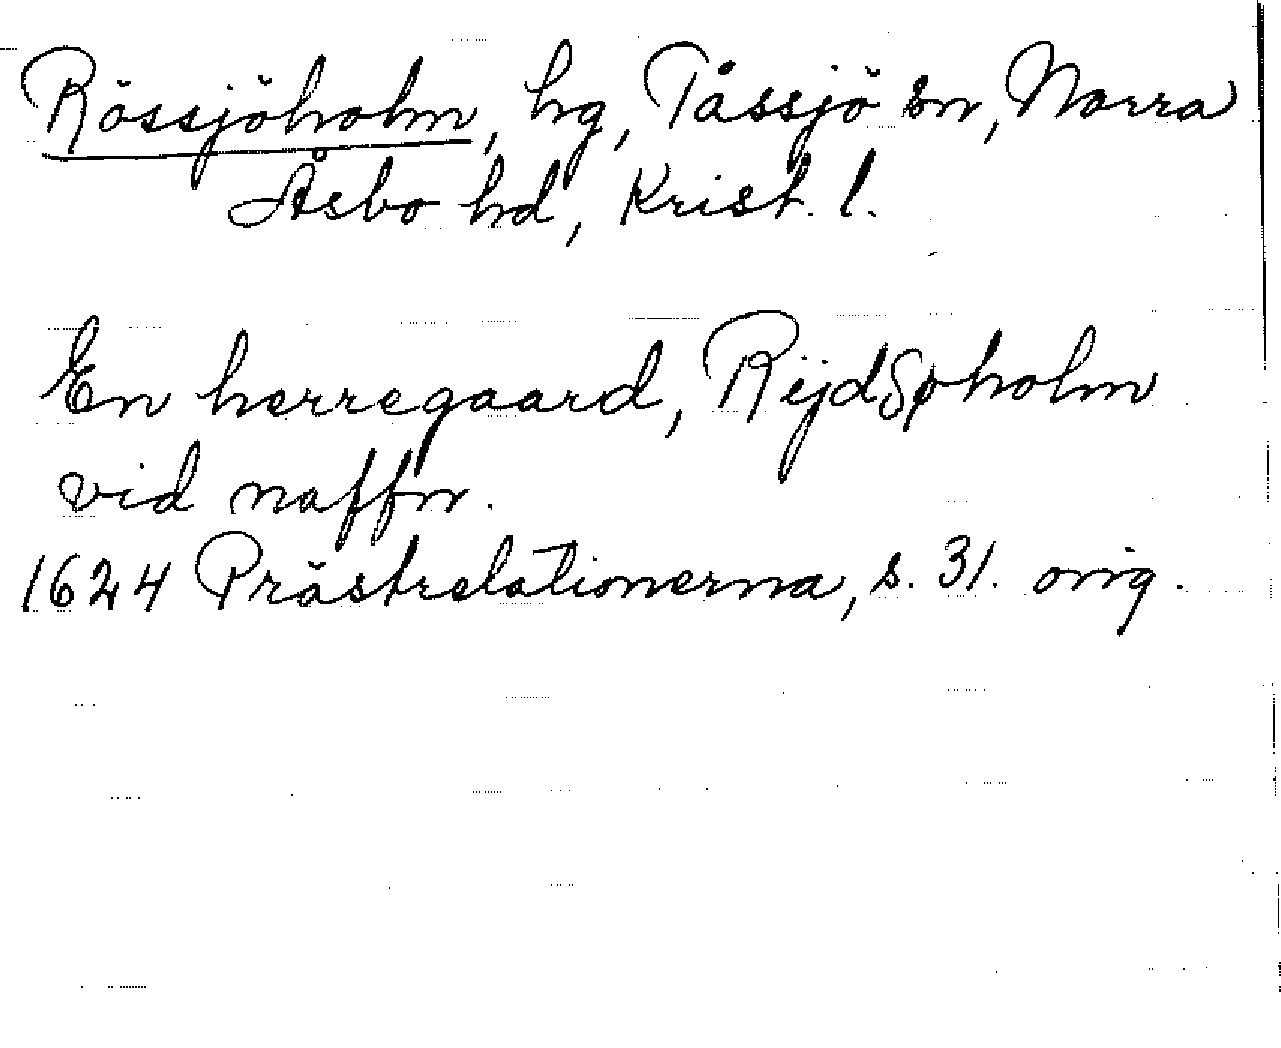 Rössjöholm, hg, Tåssjö sn, Norra
Åsbo hd, Krist. l.
En herregaard, Rejdsøholm
vid naffn.
1624 Prästrelationerna, s. 31. orig.